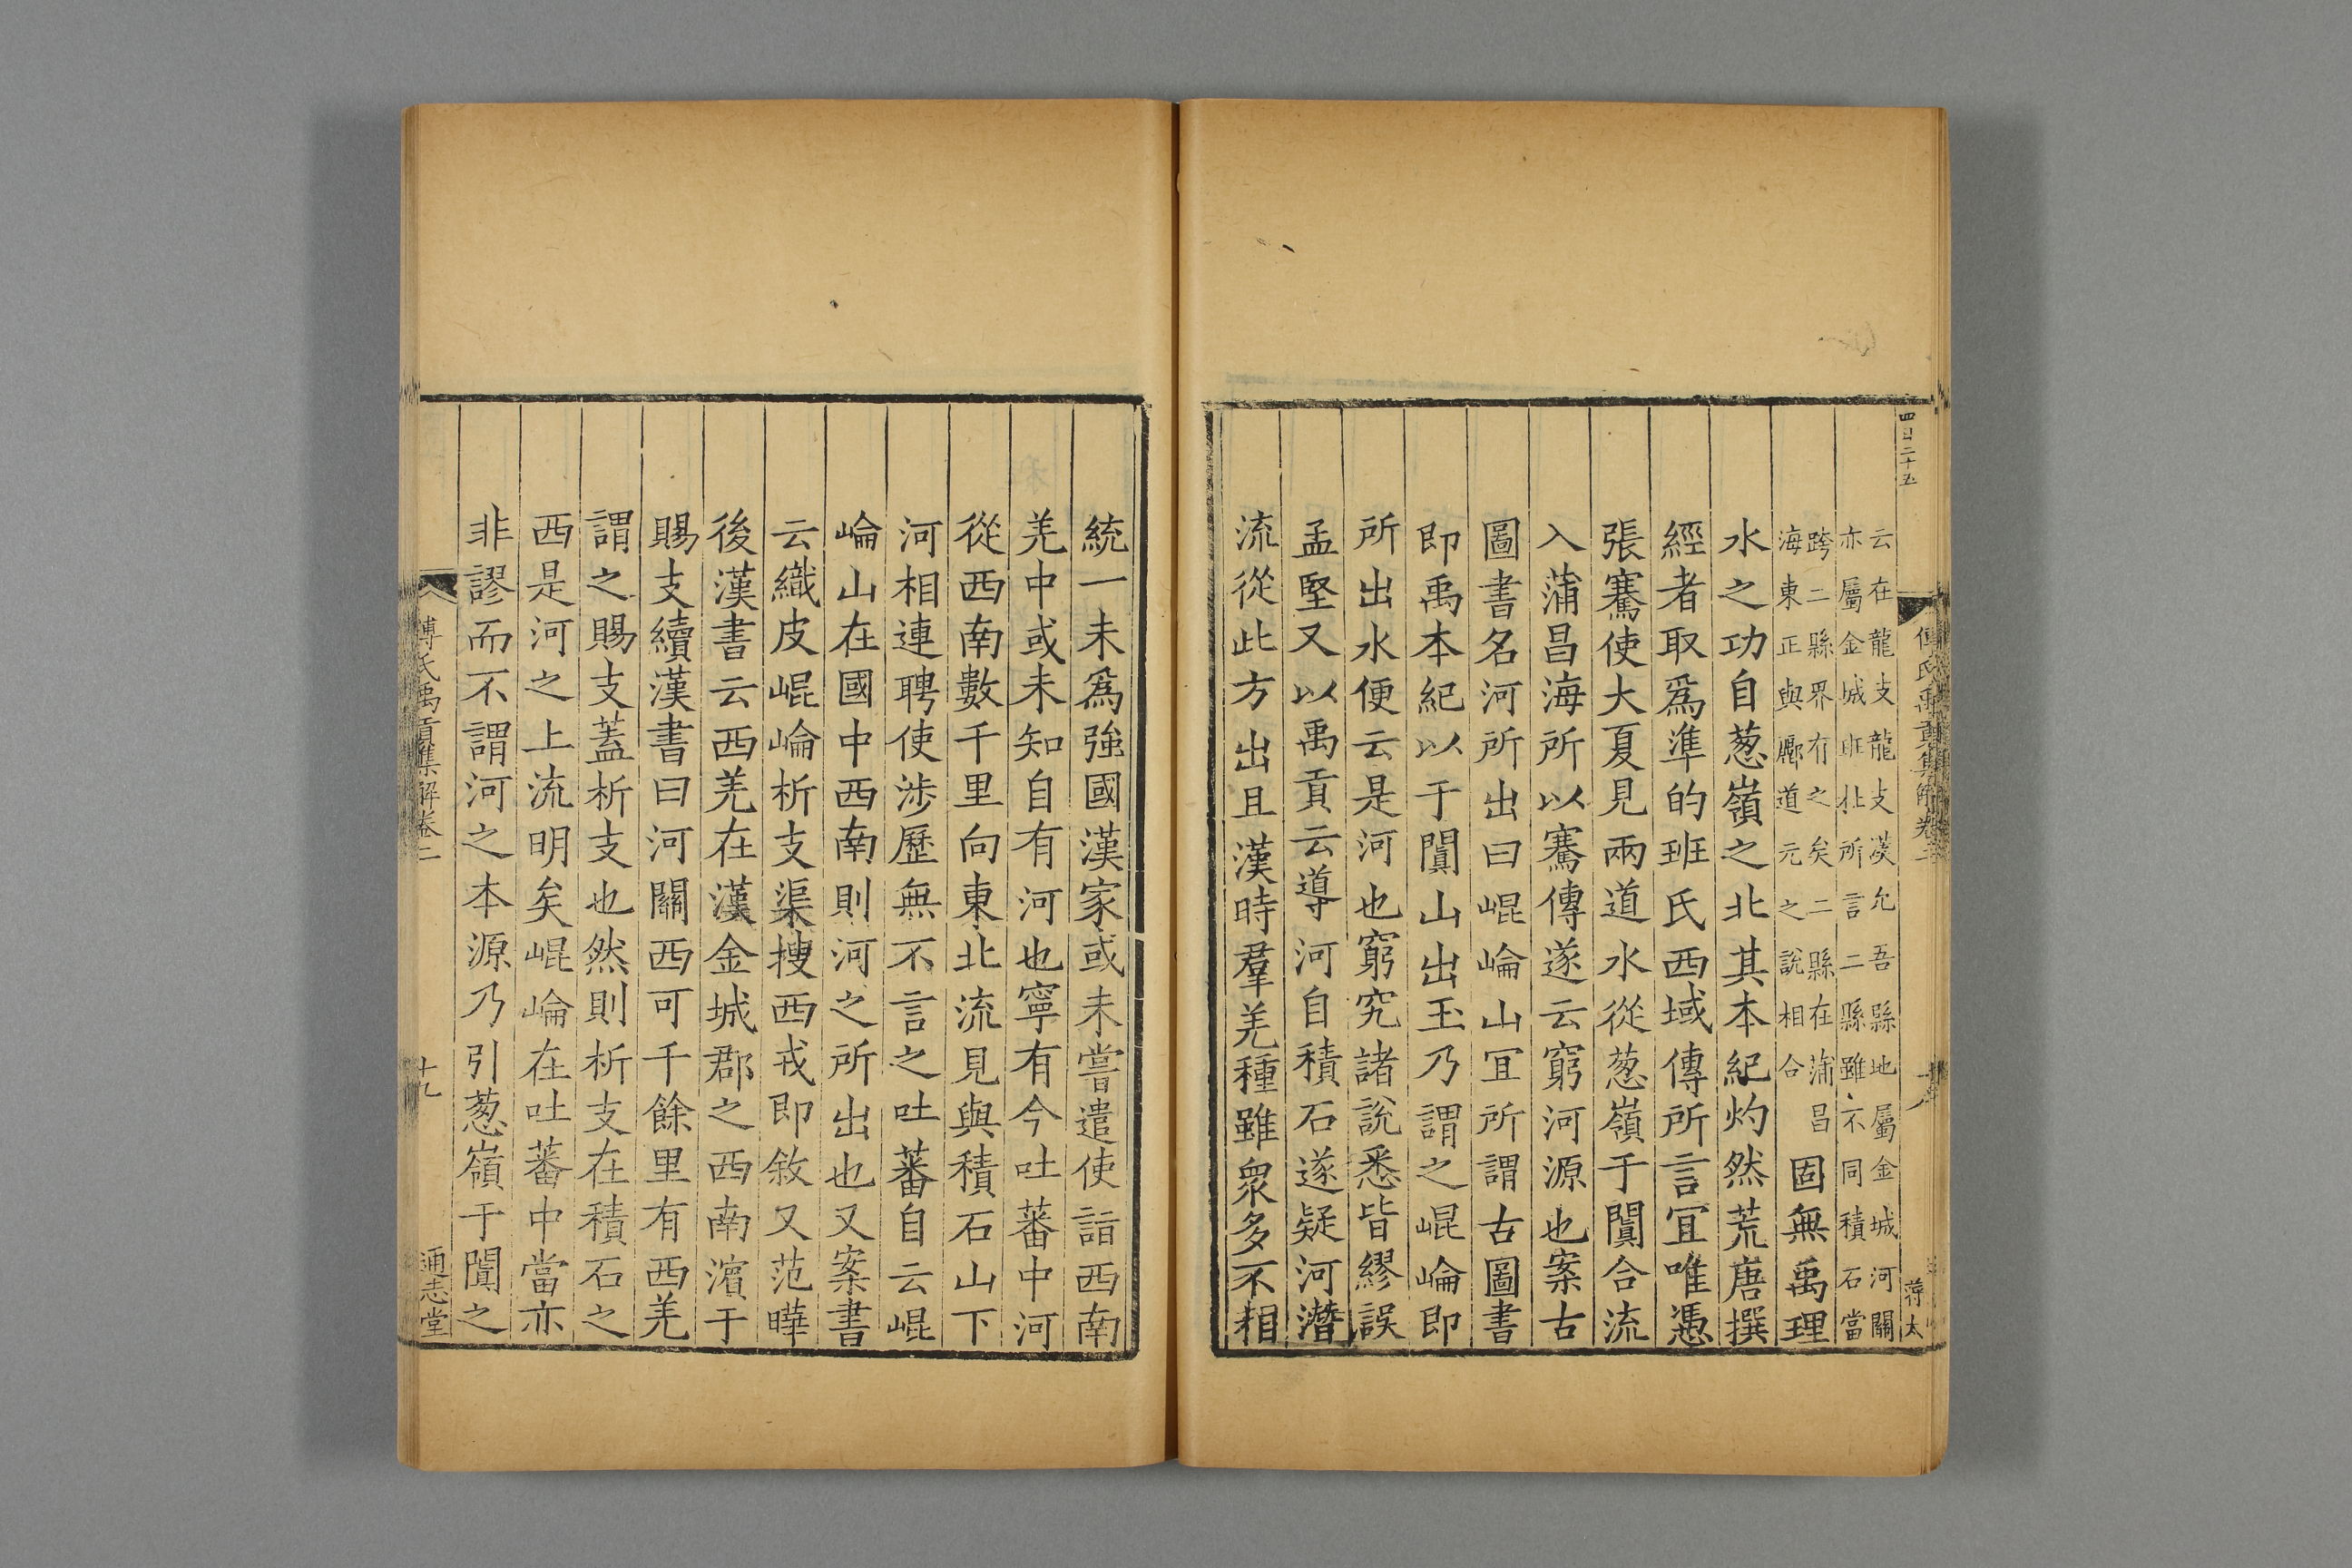 四日二十五
云在龍支龍支漢允吾縣地屬金城河關
亦屬金城班杜所言二縣雖不同積石當
跨二縣界有之矣二縣在蒲昌
海東正與酈道元之說相合
固無禹理
水之功自葱嶺之北其本紀灼然荒唐撰
經者取爲準的班氏西域傳所言冝唯憑
張騫使大夏見兩道水從葱嶺于闐合流
入蒲昌海所以騫傳遂云窮河源也案古
圖書名河所出曰崐崘山冝所謂古圖書
即禹本紀以于闐山出玉乃謂之崐崘即
所出水便云是河也窮究諸說悉皆繆誤
孟堅又以禹貢云導河自積石遂疑河潛
流從此方出且漢時羣羌種雖衆多不相
傅氏禹貢集解卷二
蔣太
統一未爲強國漢家或未嘗遣使詣西南
羌中或未知自有河也寧有今吐蕃中河
從西南數千里向東北流見與積石山下
河相連聘使涉歷無不言之吐蕃自云崐
崘山在國中西南則河之所出也又案書
云織皮崐崘析支渠搜西戎即敘又范曄
後漢書云西羌在漢金城郡之西南濵于
賜支續漢書曰河關西可千餘里有西羌
謂之賜支蓋析支也然則析支在積石之
西是河之上流明矣崐崘在吐蕃中當亦
非謬而不謂河之本源乃引葱嶺于闐之
傅氏禹貢集解卷二
十九
通志堂